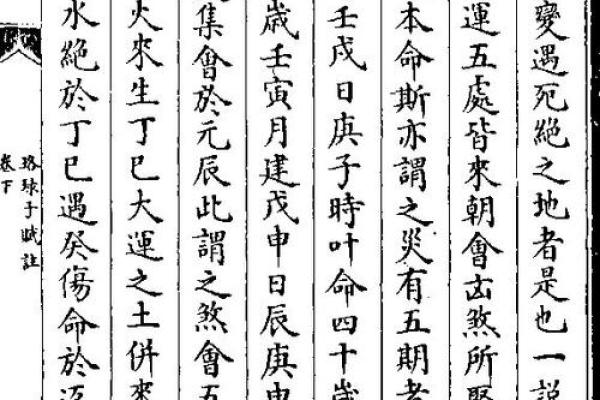 變遇死絶之地者是也一説
運五處皆來朝會㐫煞所聚
本命斯亦謂之災有五期者
壬戌日庚子時叶命四十歲
歲壬寅月建戊申日辰庚申
集會於元辰此謂之煞會五
火來生丁巳大運之土併來
水絶於丁巳遇癸傷命於
珞琭子賦註
卷下